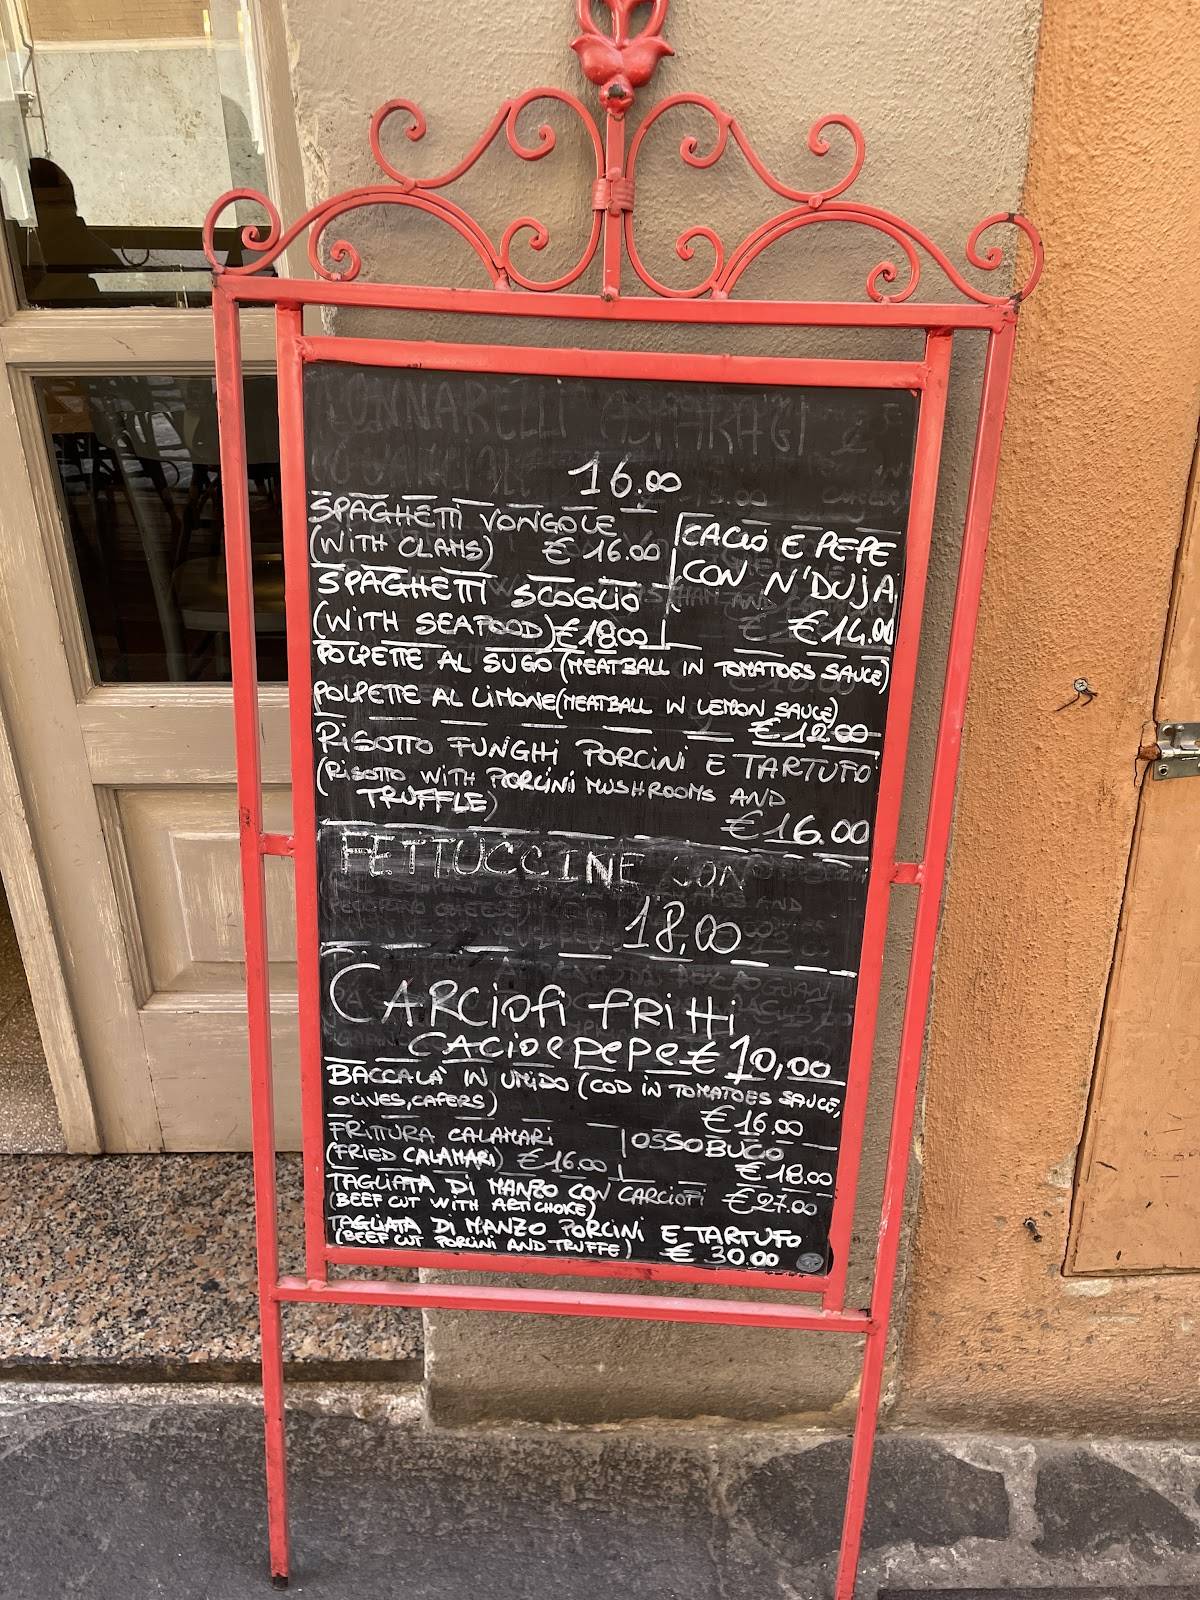 TONNARELLI ASPARAGI E
16.00
SPAGHETTI VONGOLE
(WITH CLAMS) € 16.00
CACIO E PEPE
CON N'DUJA
€14.00
SPAGHETTI SCOGLIO
(WITH SEAFOOD) €18.00
POLPETTE AL SUGO (MEATBALL IN TOMATOES SAUCE)
POLPETTE AL LIMONE (MEATBALL IN LEMON SAUCE)
€ 12.00
RISOTTO FUNGHI PORCINI E TARTUFO
(RISOTTO WITH PORCINI MUSHROOMS AND
TRUFFLE)
€16.00
FETTUCCINE CON
18,00
CARCIOFI FRITTI
CACIO e pepe € 10,00
BACCALÀ IN UMIDO (COD IN TOMATOES SAUCE,
OLIVES, CAPERS)
€ 16.00
FRITTURA CALAMARI
(FRIED CALAMARI) €16.00
OSSOBUCO
€ 18.00
TAGLIATA DI MANZO CON CARCIOFI €27.00
(BEEF CUT WITH ARTICHOKE)
TAGLIATA DI MANZO PORCINI E TARTUFO
(BEEF CUT PORCINI AND TRUFFE) € 30.00